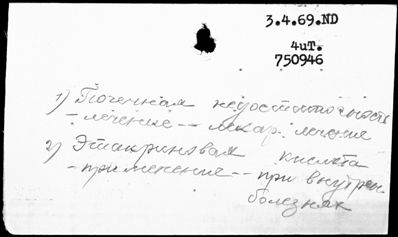 3.4.69.ND
4uT.
750946
1) Почечная недостаточность
- лечение -- лекар. лечение
2) Этакриновая кислота
- применение -- при внутрен
болезнях